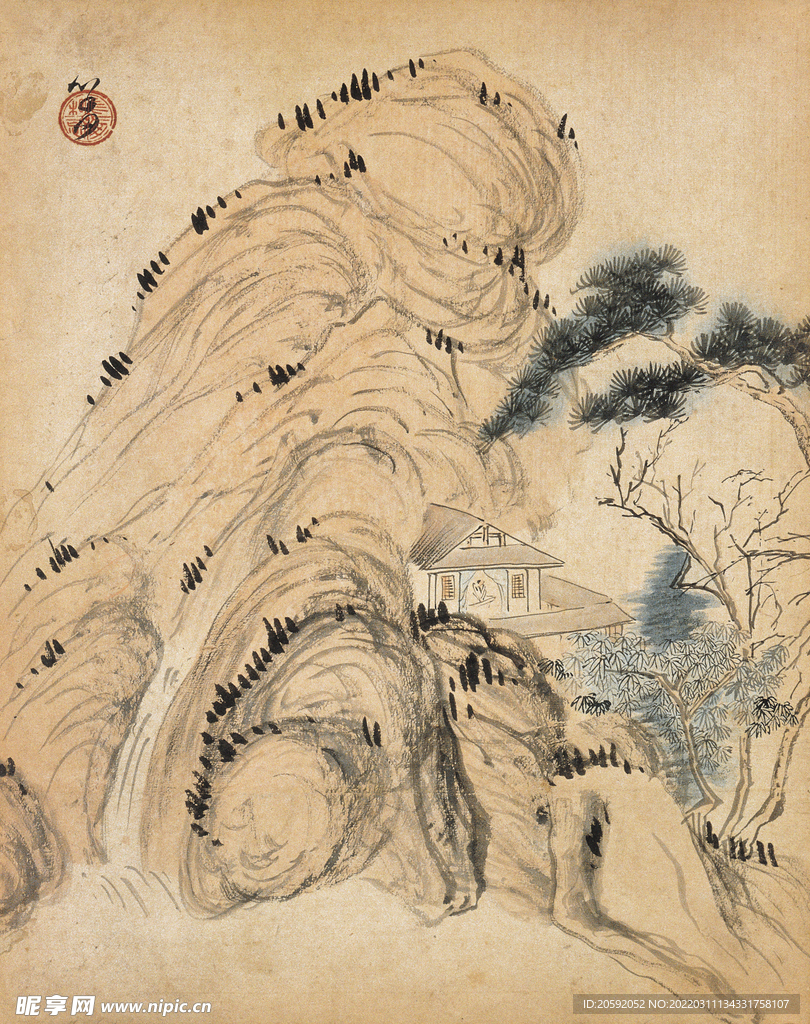 昵享网 www.nipic.cn
ID:20592052 NO:20220311134331758107